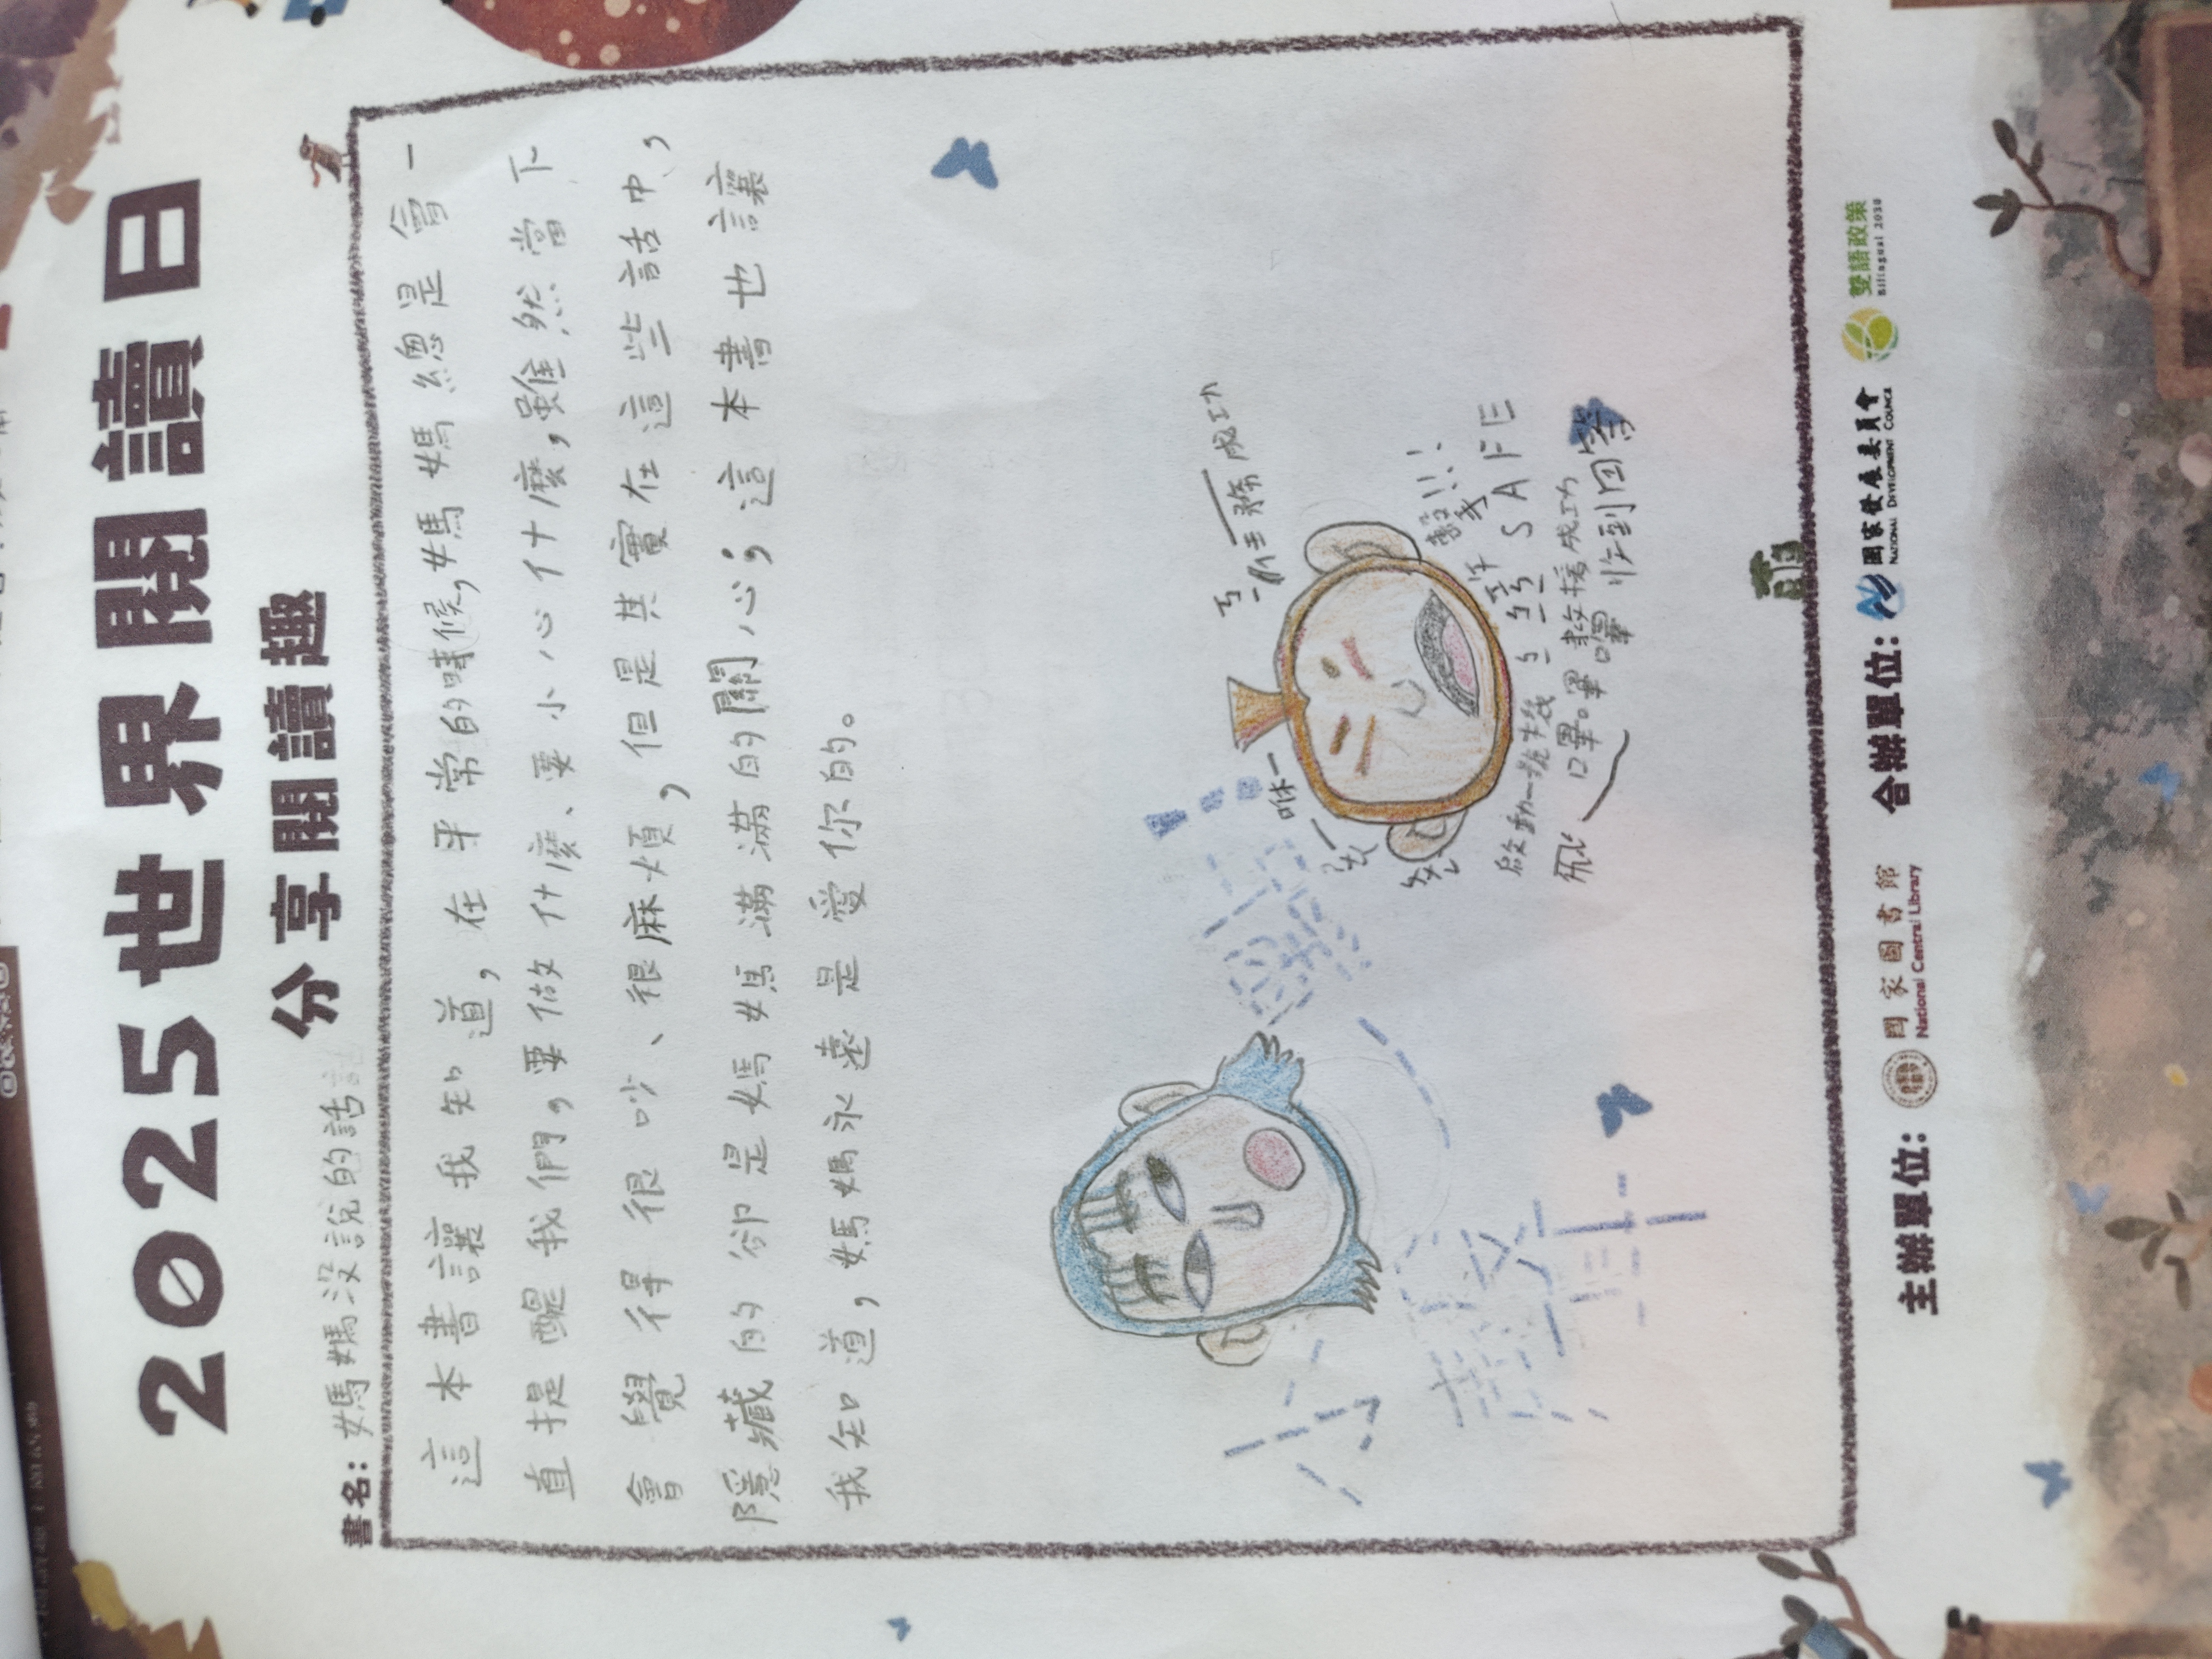 2025世界閱讀日
分享閱讀趣
書名：媽媽沒說的話
這本書讓我知道，在平常的時候，媽媽總是會一
直提醒我們，要做什麼、要小心什麼，雖然當下
會覺得很吵、很麻煩，但是其實在這些話中，
隱藏的卻是媽媽滿滿的關心；這本書也讓
我知道，媽媽永遠是愛你的。
任務成功
咻
SAFE
啟動一號
救援成功
收到回答
主辦單位：
國家圖書館
National Central Library
合辦單位：
國家發展委員會
NATIONAL DEVELOPMENT COUNCIL
雙語政策
Bilingual 2030